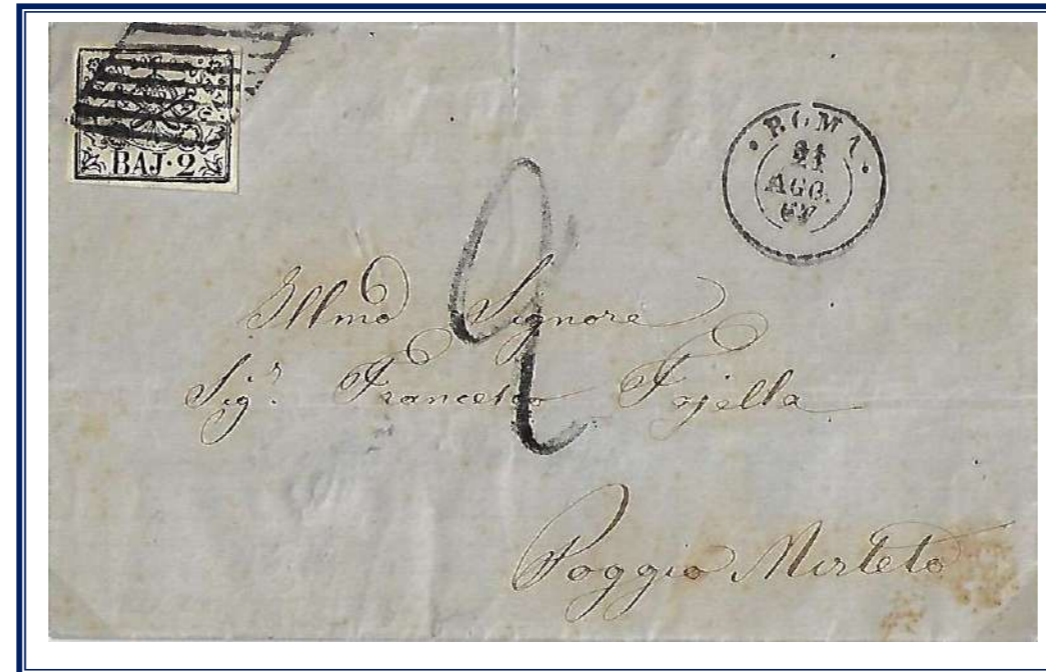 BAJ·2
ROMA
21
AGO.
67
2
Illmo Signore
Sigr. Francesco Fajella
Poggio Mirteto